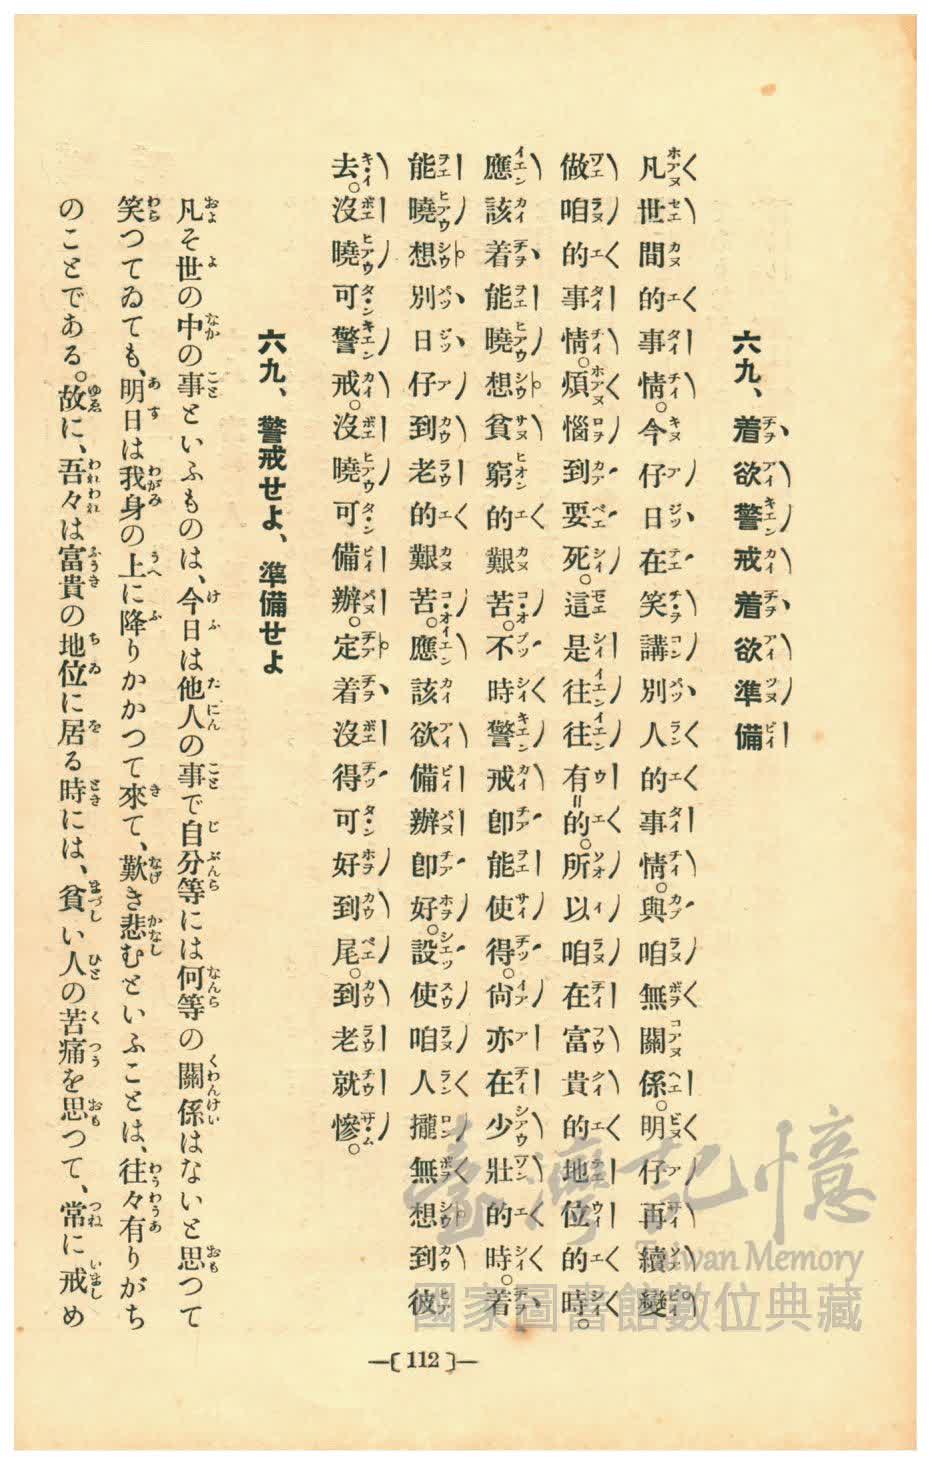 六九、着欲警戒着欲準備
凡世間的事情。今仔日在笑講別人的事情。與咱無關係。明仔再續變
做咱的事情。煩惱到要死。這是往往有的。所以咱在富貴的地位的時。
應該着能曉想貧窮的艱苦。不時警戒卽能使得。尙亦在少壯的時。着
能曉想別日仔到老的艱苦。應該欲備辦卽好。設使咱人攏無想到彼
去。沒曉可警戒。沒曉可備辦。定着沒得可好到尾。到老就慘。
六九、警戒せよ、準備せよ
凡そ世の中の事といふものは、今日は他人の事で自分等には何等の關係はないと思つて
笑つてゐても、明日は我身の上に降りかかつて來て、歎き悲むといふことは、往々有りがち
のことである。故に、吾々は富貴の地位に居る時には、貧い人の苦痛を思つて、常に戒め
112
臺灣記憶
Taiwan Memory
國家圖書館數位典藏